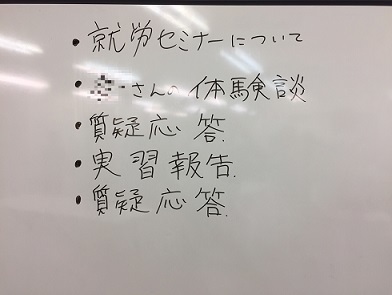 ・就労セミナーについて
・さんの体験談
・質疑応答.
・実習報告.
・質疑応答.